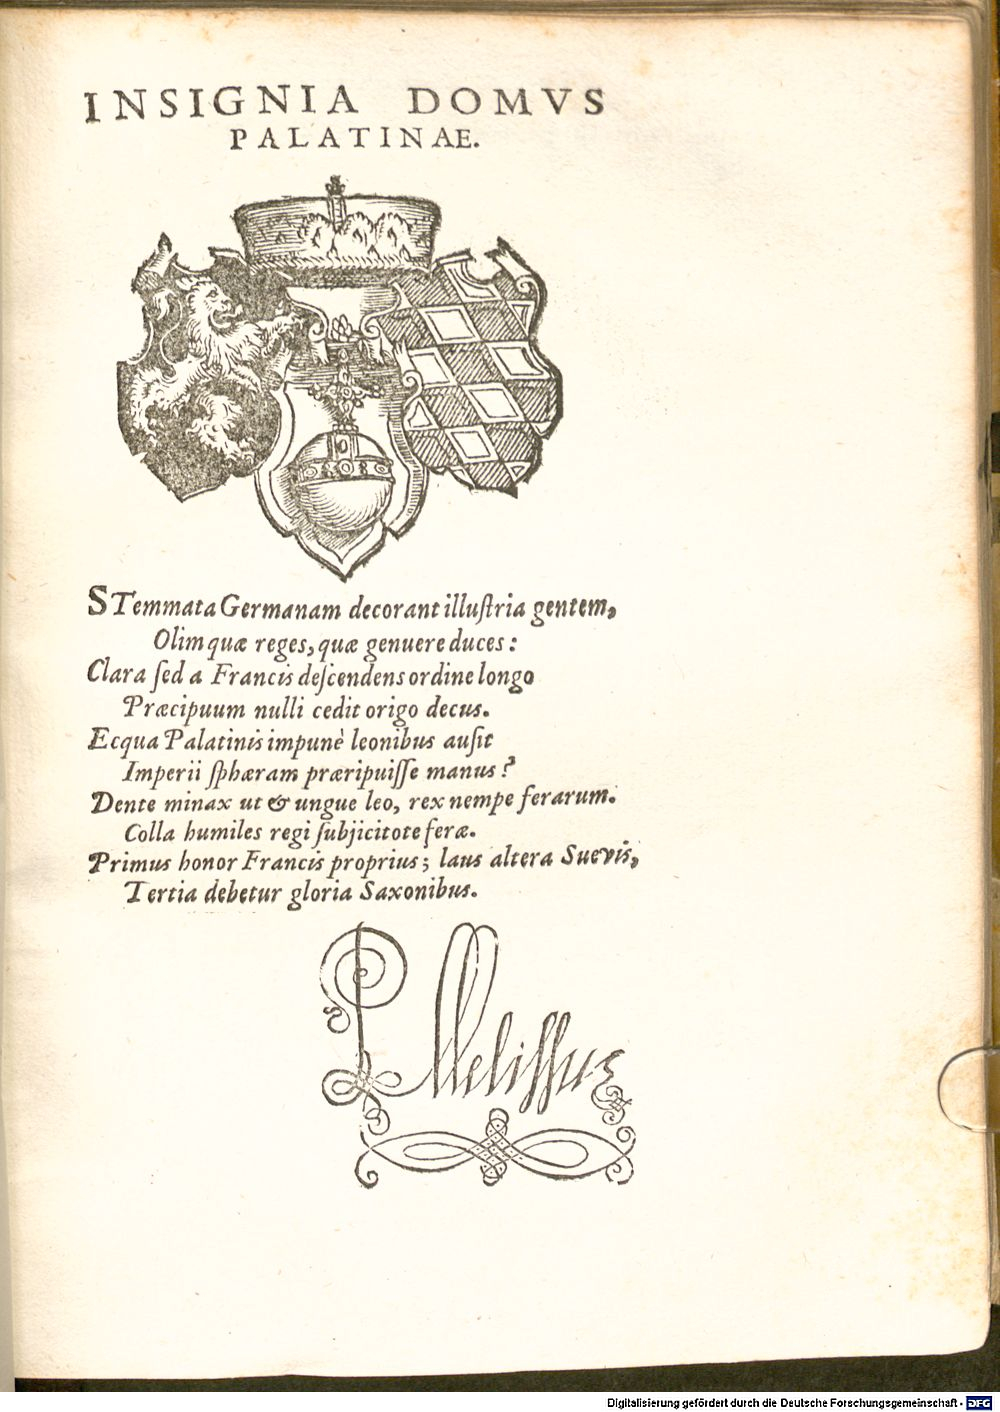 INSIGNIA DOMVS
PALATINAE.
STemmata Germanam decorant illuſtria gentem,
Olim quæ reges, quæ genuere duces:
Clara ſed a Francis deſcendens ordine longo
Præcipuum nulli cedit origo decus.
Ecqua Palatinis impunè leonibus auſit
Imperii ſphæram præripuiſſe manus?
Dente minax ut & ungue leo, rex nempe ferarum.
Colla humiles regi ſubjicitote feræ.
Primus honor Francis proprius; laus altera Suevis,
Tertia debetur gloria Saxonibus.
P Meliſſus
Digitalisierung gefördert durch die Deutsche Forschungsgemeinschaft - DFG